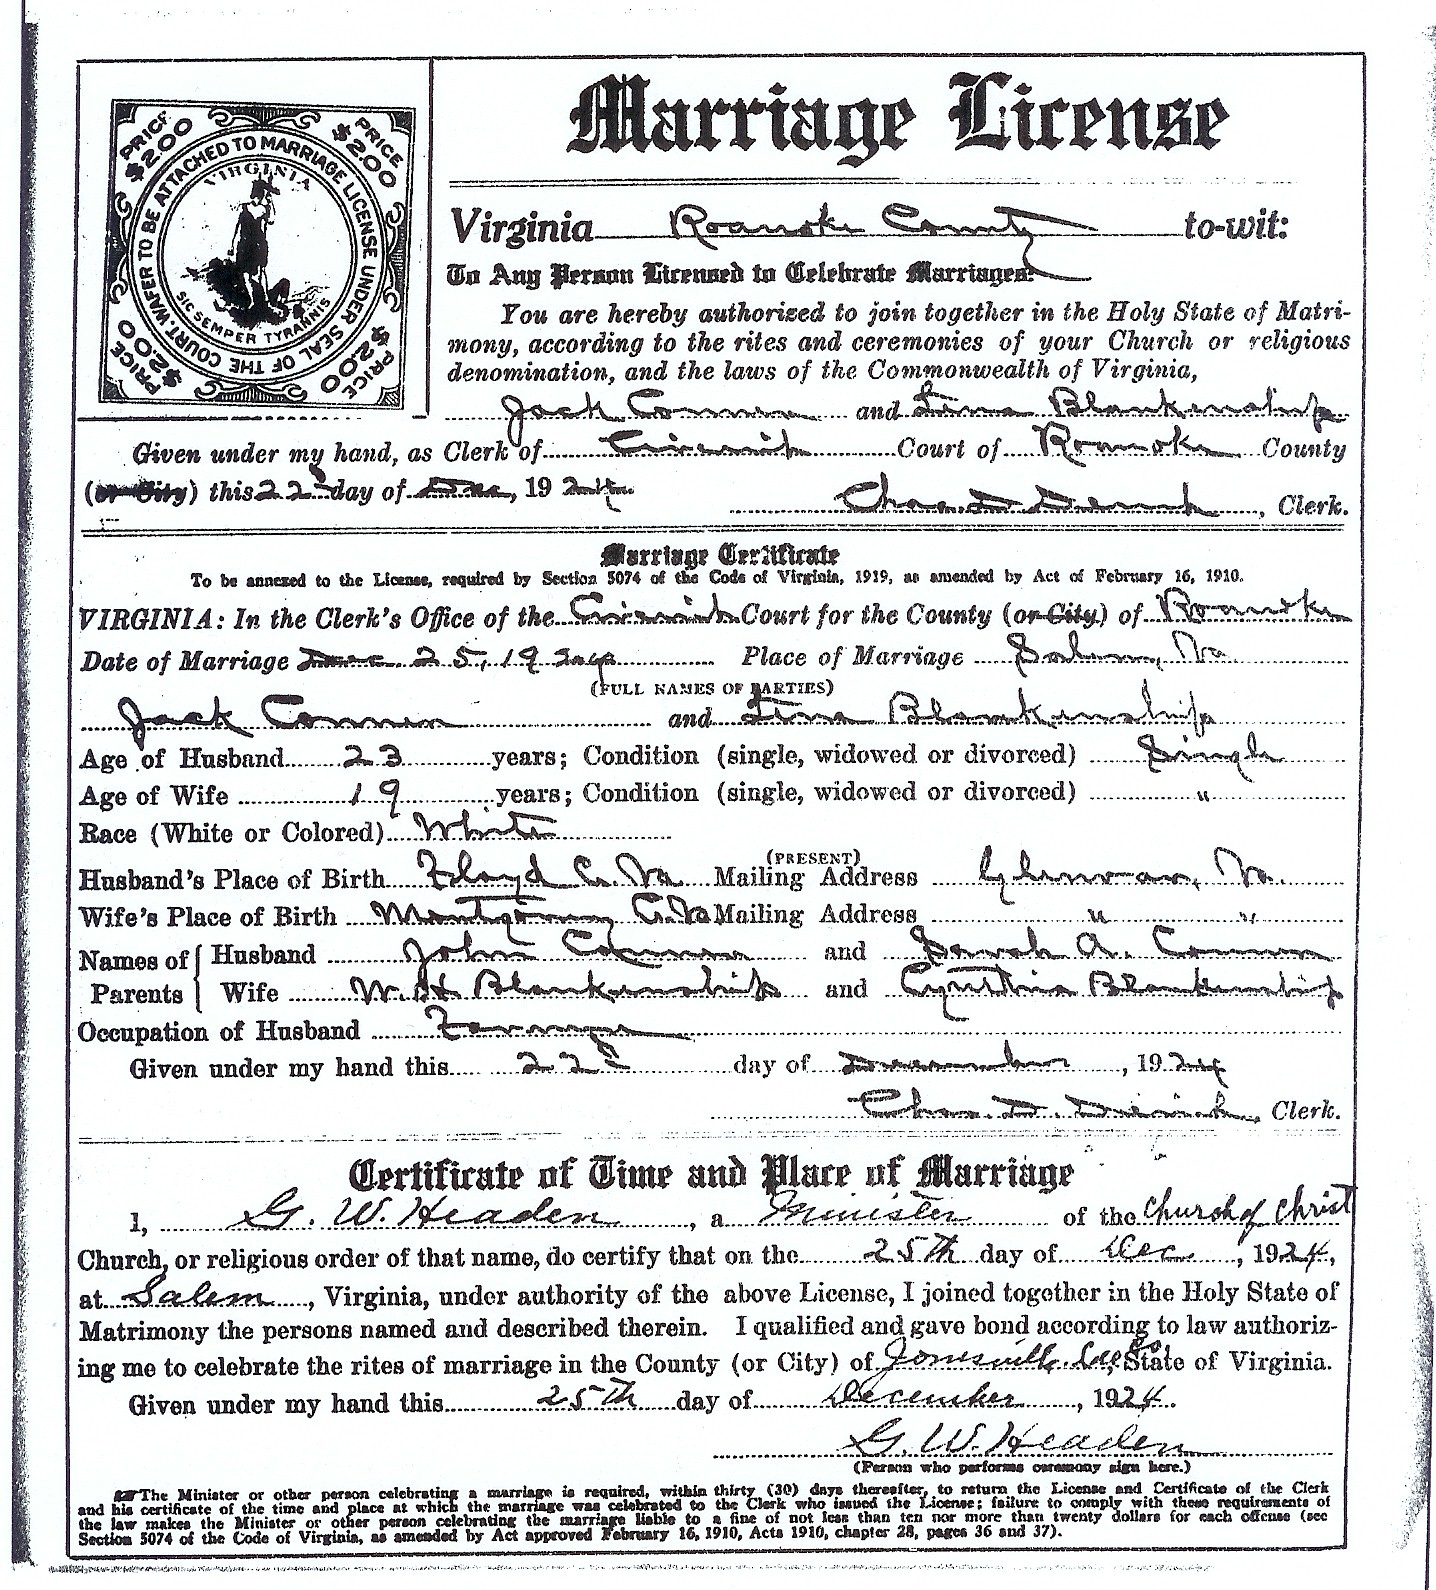 Marriage License
PRICE $2.00 PRICE $2.00
WAFER TO BE ATTACHED TO MARRIAGE LICENSE UNDER SEAL OF THE COURT.
VIRGINIA
SIC SEMPER TYRANNIS
PRICE $2.00 PRICE $2.00
Virginia Roanoke County to-wit:
To Any Person Licensed to Celebrate Marriages:
You are hereby authorized to join together in the Holy State of Matri-
mony, according to the rites and ceremonies of your Church or religious
denomination, and the laws of the Commonwealth of Virginia,
Jack Conner and Blankenship
Given under my hand, as Clerk of Circuit Court of Roanoke County
(or City) this 22 day of Dec, 1924
Chas. D. Clerk.
Marriage Certificate
To be annexed to the License, required by Section 5074 of the Code of Virginia, 1919, as amended by Act of February 16, 1910.
VIRGINIA: In the Clerk's Office of the Circuit Court for the County (or City) of Roanoke
Date of Marriage Dec 25, 1924 Place of Marriage Salem, Va.
(FULL NAMES OF PARTIES)
Jack Conner and Blankenship
Age of Husband 23 years; Condition (single, widowed or divorced) Single
Age of Wife 19 years; Condition (single, widowed or divorced) "
Race (White or Colored) White
(PRESENT)
Husband's Place of Birth Floyd Co. Va Mailing Address Va.
Wife's Place of Birth Montgomery Co. Va Mailing Address " "
Names of Parents
Husband John Conner and Sarah A. Conner
Wife W. H. Blankenship and Cynthia Blankenship
Occupation of Husband Farmer
Given under my hand this 22 day of December, 1924
Chas. D. Clerk.
Certificate of Time and Place of Marriage
I, G. W. Headen, a Minister of the Church of Christ
Church, or religious order of that name, do certify that on the 25th day of Dec, 1924,
at Salem, Virginia, under authority of the above License, I joined together in the Holy State of
Matrimony the persons named and described therein. I qualified and gave bond according to law authoriz-
ing me to celebrate the rites of marriage in the County (or City) of Jonesville, Lee Co State of Virginia.
Given under my hand this 25th day of December, 1924.
G. W. Headen
(Person who performs ceremony sign here.)
The Minister or other person celebrating a marriage is required, within thirty (30) days thereafter, to return the License and Certificate of the Clerk
and his certificate of the time and place at which the marriage was celebrated to the Clerk who issued the License; failure to comply with these requirements of
the law makes the Minister or other person celebrating the marriage liable to a fine of not less than ten nor more than twenty dollars for each offense (see
Section 5074 of the Code of Virginia, as amended by Act approved February 16, 1910, Acts 1910, chapter 28, pages 36 and 37).